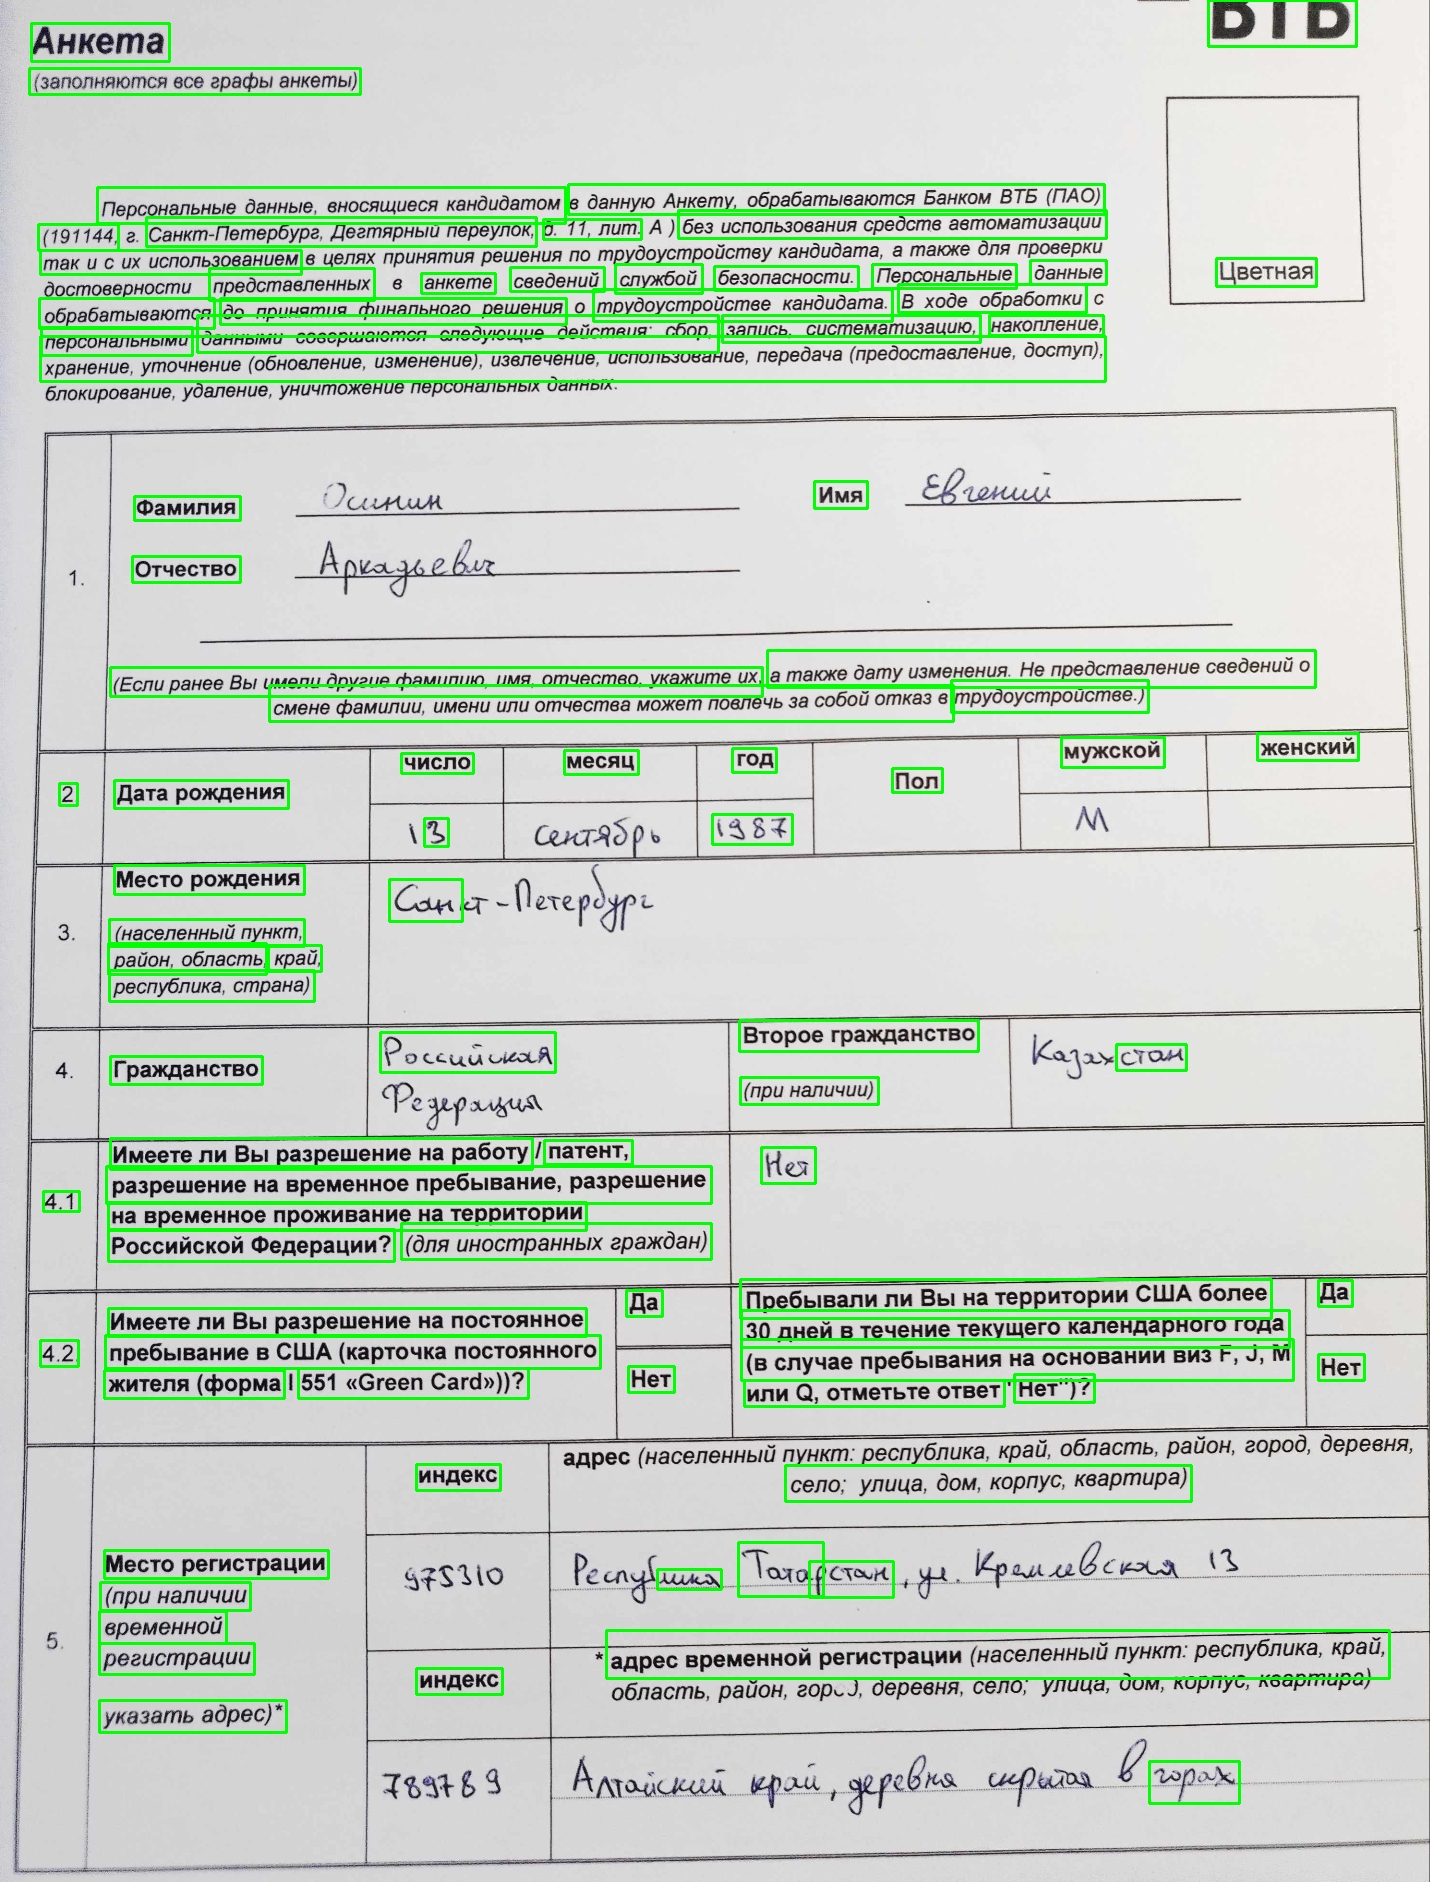 ВТБ
Анкета
(заполняются все графы анкеты)
Цветная
Персональные данные, вносящиеся кандидатом в данную Анкету, обрабатываются Банком ВТБ (ПАО)
(191144, г. Санкт-Петербург, Дегтярный переулок, д. 11, лит. А ) без использования средств автоматизации
так и с их использованием в целях принятия решения по трудоустройству кандидата, а также для проверки
достоверности представленных в анкете сведений службой безопасности. Персональные данные
обрабатываются до принятия финального решения о трудоустройстве кандидата. В ходе обработки с
персональными данными совершаются следующие действия: сбор, запись, систематизацию, накопление,
хранение, уточнение (обновление, изменение), извлечение, использование, передача (предоставление, доступ),
блокирование, удаление, уничтожение персональных данных.
1.
Фамилия Осинин Имя Евгений
Отчество Аркадьевич
(Если ранее Вы имели другие фамилию, имя, отчество, укажите их, а также дату изменения. Не представление сведений о
смене фамилии, имени или отчества может повлечь за собой отказ в трудоустройстве.)
2 Дата рождения число месяц год Пол мужской женский
13 сентябрь 1987 М
3. Место рождения
(населенный пункт,
район, область, край,
республика, страна)
Санкт-Петербург
4. Гражданство
Российская
Федерация
Второе гражданство
(при наличии)
Казахстан
4.1 Имеете ли Вы разрешение на работу / патент,
разрешение на временное пребывание, разрешение
на временное проживание на территории
Российской Федерации? (для иностранных граждан)
Нет
4.2 Имеете ли Вы разрешение на постоянное
пребывание в США (карточка постоянного
жителя (форма I 551 «Green Card»))?
Да
Нет
Пребывали ли Вы на территории США более
30 дней в течение текущего календарного года
(в случае пребывания на основании виз F, J, M
или Q, отметьте ответ "Нет")?
Да
Нет
5. Место регистрации
(при наличии
временной
регистрации
указать адрес)*
индекс
адрес (населенный пункт: республика, край, область, район, город, деревня,
село; улица, дом, корпус, квартира)
975310
Республика Татарстан, ул. Кремлевская 13
индекс
* адрес временной регистрации (населенный пункт: республика, край,
область, район, город, деревня, село; улица, дом, корпус, квартира)
789789
Алтайский край, деревня скрытая в горах